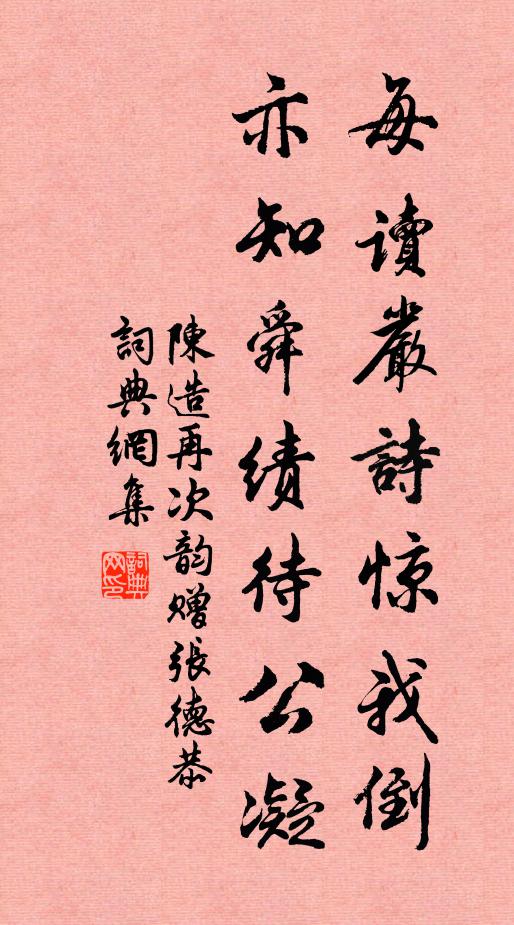 每讀嚴詩惊我倒
亦知舜績待公凝
陳造再次韵贈張德恭
詞典網集
詞典网印